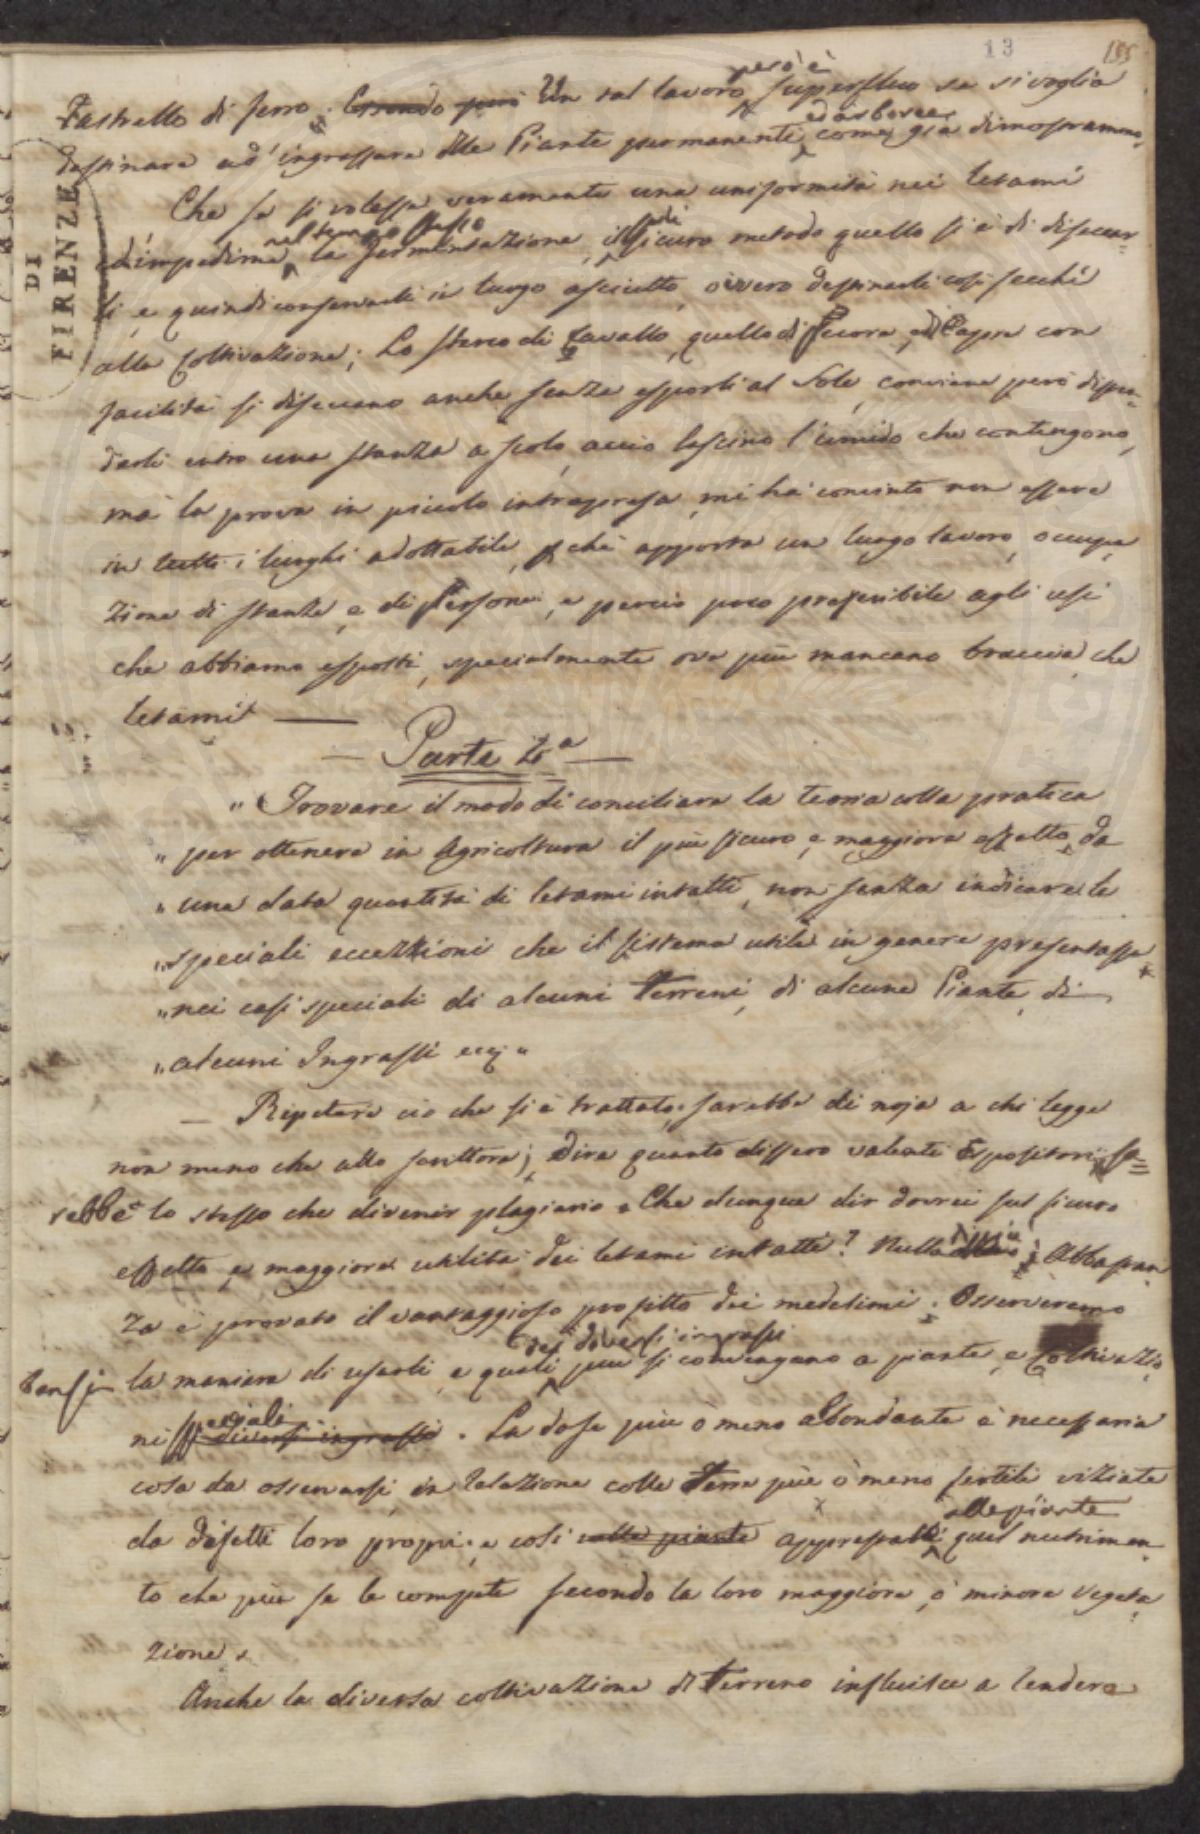 13 155
però è
Rastrello di ferro. Essendo però Un tal lavoro superfluo se si voglia
ed arboree
destinare ad' ingrassare alle Piante permanenti come già dimostrammo.
Che se si volesse veramente una uniformità nei letami
nel tempo stesso
ed impedirne la fermentazione, il sicuro metodo quello si è di diseccar=
li, e quindi conservarli in luogo asciutto, ovvero destinarli così secchi
alla Coltivazione; Lo sterco di Cavallo, quello di Pecora, e di Capra con
facilità si diseccano anche senza esporli al Sole, conviene però dispen=
derli entro una stanza a scolo, acciò lascino l'umido che contengono,
mà la prova in piccolo intrapresa, mi hà convinto non essere
in tutti i luoghi adottabile, p chè apporta un lungo lavoro, occupa
zione di stanze, e di Persone, e perciò poco preferibile agli usi
che abbiamo esposti, specialmente ove più mancano braccia, che
letami —
— Parte 2.a —
" Trovare il modo di conciliare la teoria colla pratica
" per ottenere in Agricoltura il più sicuro, e maggiore effetto da
" una data quantità di letami intatti, non senza indicare le
" speciali eccezzioni che il sistema utile in genere presentasse
" nei casi speciali di alcuni Terreni, di alcune Piante, di
" alcuni Ingrassi ecc; "
— Ripetere ciò che si è trattato, sarebbe di noja a chi legge
non meno che allo scrittore; Dire quanto dissero valenti Espositori, sa=
rebbe lo stesso che divenir plagiario. Che dunque dir dovrei sul sicuro
effetto, e maggiore utilità dei letami intatti? Nulla di più; Abbastan
za è provato il vantaggioso profitto dei medesimi. Osserveremo
dei diversi ingrassi
bensì la maniera di usarli, e quali più si convengano a piante, e Coltivazio
speciali
ni diversi ingrassi. La dose più o meno abbondante è necessaria
cosa da osservarsi in relazione colle Terre più o meno fertili viziate
alle piante
da difetti loro proprj; e così alle piante apprestatli quel nutrimen
to che più se le compete secondo la loro maggiore, o minore vegeta
zione.
Anche la diversa coltivazione di Terreno influisce a rendere
DI
FIRENZE